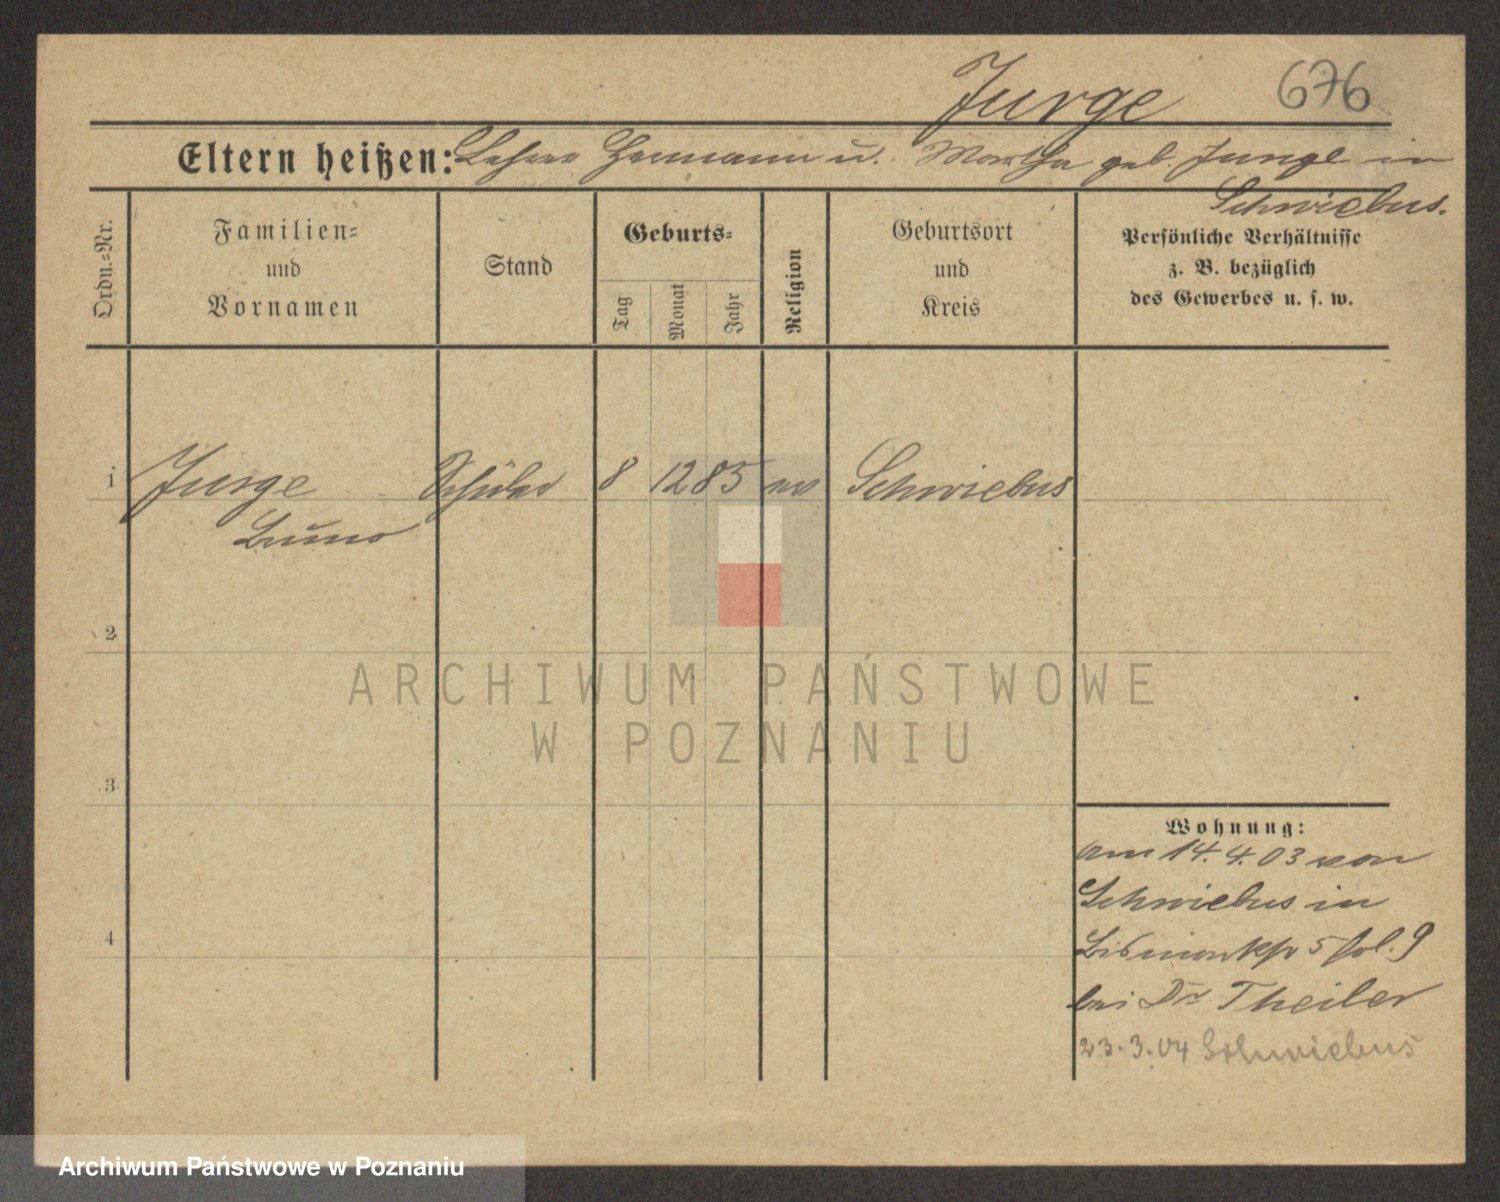 Jurge 676
Eltern heißen: Lehrer Hermann u. Martha geb. Junge in
Schwiebus.
Ordn.-Nr.
Familien-
und
Vornamen
Stand
Geburts-
Tag
Monat
Jahr
Religion
Geburtsort
und
Kreis
Persönliche Verhältnisse
z. B. bezüglich
des Gewerbes u. s. w.
1 Jurge Schüler 8 12 85 ev Schwiebus
Bruno
2
ARCHIWUM PAŃSTWOWE
W POZNANIU
3
Wohnung:
am 14. 4. 03 von
Schwiebus in
4
Bismarkstr 5 fol. 9
bei Dr Theiler
23. 3. 04 Schwiebus
Archiwum Państwowe w Poznaniu